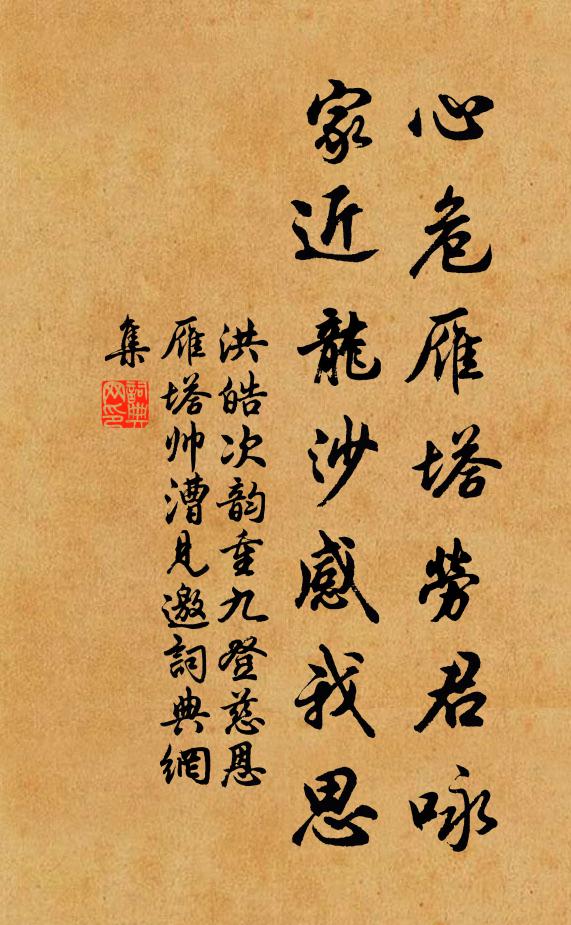 心危雁塔勞君咏
家近龍沙感我思
洪皓次韵重九登慈恩
雁塔帅漕見邀詞典網
集
詞典
网印